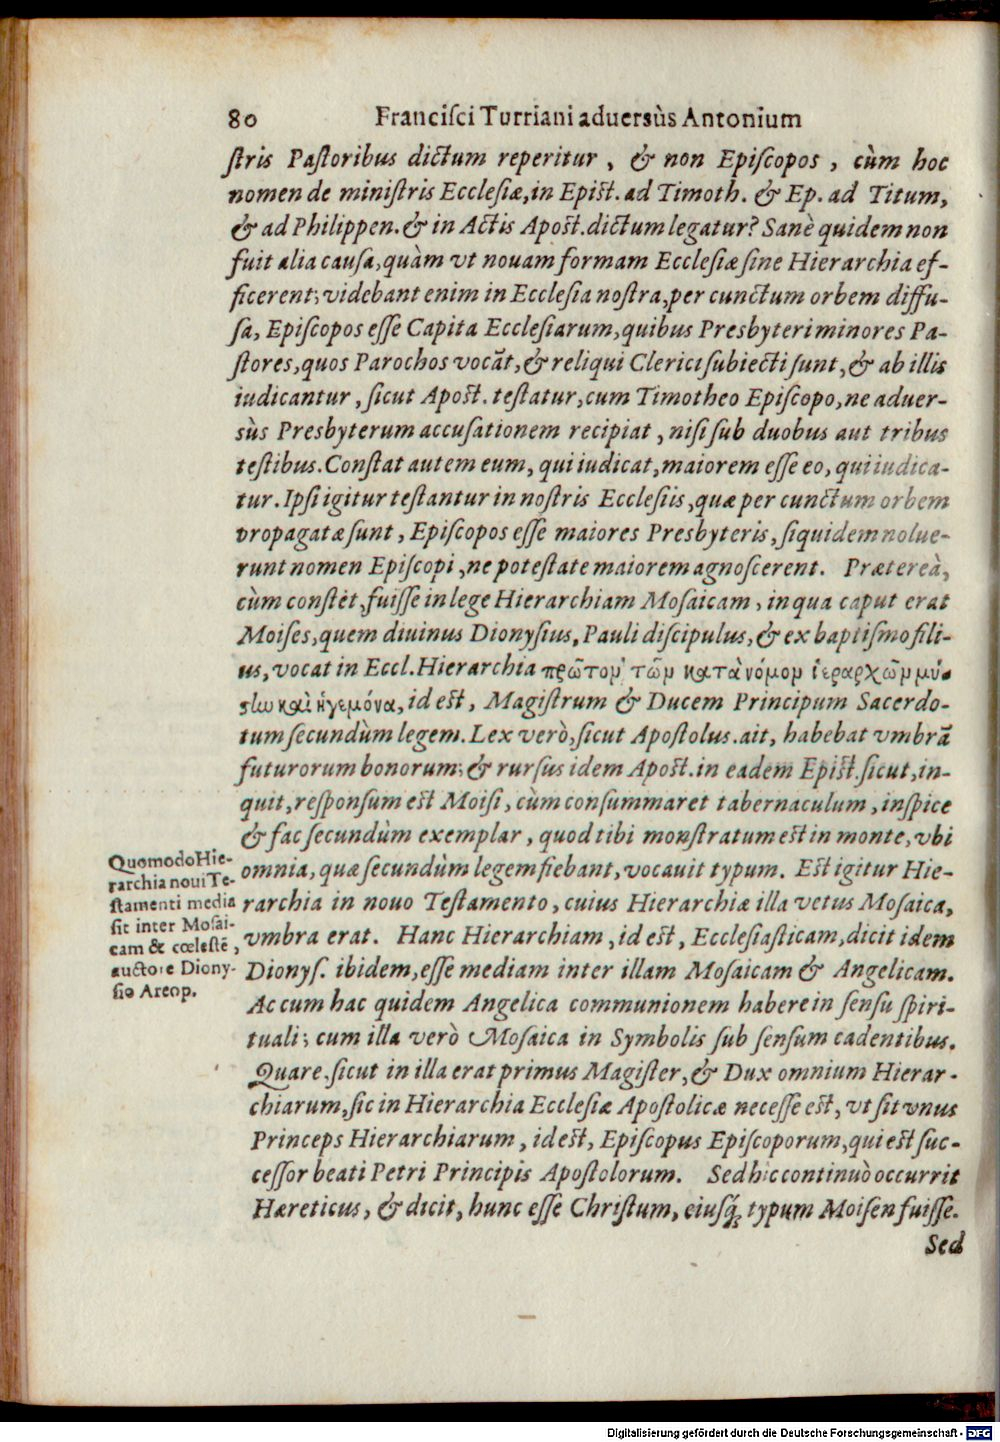 80 Franciſci Turriani aduersùs Antonium
ſtris Paſtoribus dictum reperitur, & non Epiſcopos, cùm hoc
nomen de miniſtris Eccleſiæ, in Epiſt. ad Timoth. & Ep. ad Titum,
& ad Philippen. & in Actis Apoſt. dictum legatur? Sanè quidem non
fuit alia cauſa, quàm vt nouam formam Eccleſiæ ſine Hierarchia ef-
ficerent; videbant enim in Eccleſia noſtra, per cunctum orbem diffu-
ſa, Epiſcopos eſſe Capita Eccleſiarum, quibus Presbyteri minores Pa-
ſtores, quos Parochos vocãt, & reliqui Clerici ſubiecti ſunt, & ab illis
iudicantur, ſicut Apoſt. teſtatur, cum Timotheo Epiſcopo, ne aduer-
sùs Presbyterum accuſationem recipiat, niſi ſub duobus aut tribus
teſtibus. Conſtat autem eum, qui iudicat, maiorem eſſe eo, qui iudica-
tur. Ipſi igitur teſtantur in noſtris Eccleſiis, quæ per cunctum orbem
propagatæ ſunt, Epiſcopos eſſe maiores Presbyteris, ſiquidem nolue-
runt nomen Epiſcopi, ne poteſtate maiorem agnoſcerent. Præterea,
cùm conſtet, fuiſſe in lege Hierarchiam Moſaicam, in qua caput erat
Moiſes, quem diuinus Dionyſius, Pauli diſcipulus, & ex baptiſmo fili-
us, vocat in Eccl. Hierarchia πρῶτον τῶν κατὰ νόμον ἱεραρχῶν μύ-
στω καὶ ἡγεμόνα, id eſt, Magiſtrum & Ducem Principum Sacerdo-
tum ſecundùm legem. Lex verò, ſicut Apoſtolus ait, habebat vmbrã
futurorum bonorum; & rurſus idem Apoſt. in eadem Epiſt. ſicut, in-
quit, reſponſum eſt Moiſi, cùm conſummaret tabernaculum, inſpice
& fac ſecundùm exemplar, quod tibi monſtratum eſt in monte, vbi
omnia, quæ ſecundùm legem fiebant, vocauit typum. Eſt igitur Hie-
rarchia in nouo Teſtamento, cuius Hierarchiæ illa vetus Moſaica,
vmbra erat. Hanc Hierarchiam, id eſt, Eccleſiaſticam, dicit idem
Dionyſ. ibidem, eſſe mediam inter illam Moſaicam & Angelicam.
Ac cum hac quidem Angelica communionem habere in ſenſu ſpiri-
tuali; cum illa verò Moſaica in Symbolis ſub ſenſum cadentibus.
Quare, ſicut in illa erat primus Magiſter, & Dux omnium Hierar-
chiarum, ſic in Hierarchia Eccleſiæ Apoſtolicæ neceſſe eſt, vt ſit vnus
Princeps Hierarchiarum, id eſt, Epiſcopus Epiſcoporum, qui eſt ſuc-
ceſſor beati Petri Principis Apoſtolorum. Sed hic continuò occurrit
Hæreticus, & dicit, hunc eſſe Chriſtum, eiuſq́; typum Moiſen fuiſſe.
Sed
Quomodo Hie-
rarchia noui Te-
ſtamenti media
ſit inter Moſai-
cam & cœleſtē,
auctore Diony-
ſio Areop.
Digitalisierung gefördert durch die Deutsche Forschungsgemeinschaft - DFG